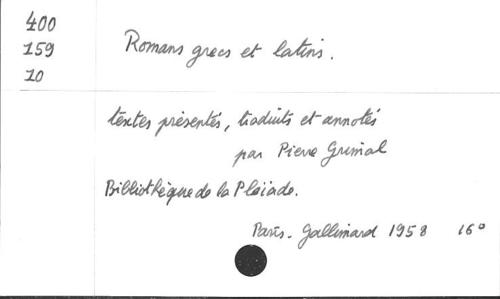 400
159
10
Romans grecs et latins.
textes présentés, traduits et annotés
par Pierre Grimal
Bibliothèque de la Pléiade.
Paris. Gallimard 1958 16°